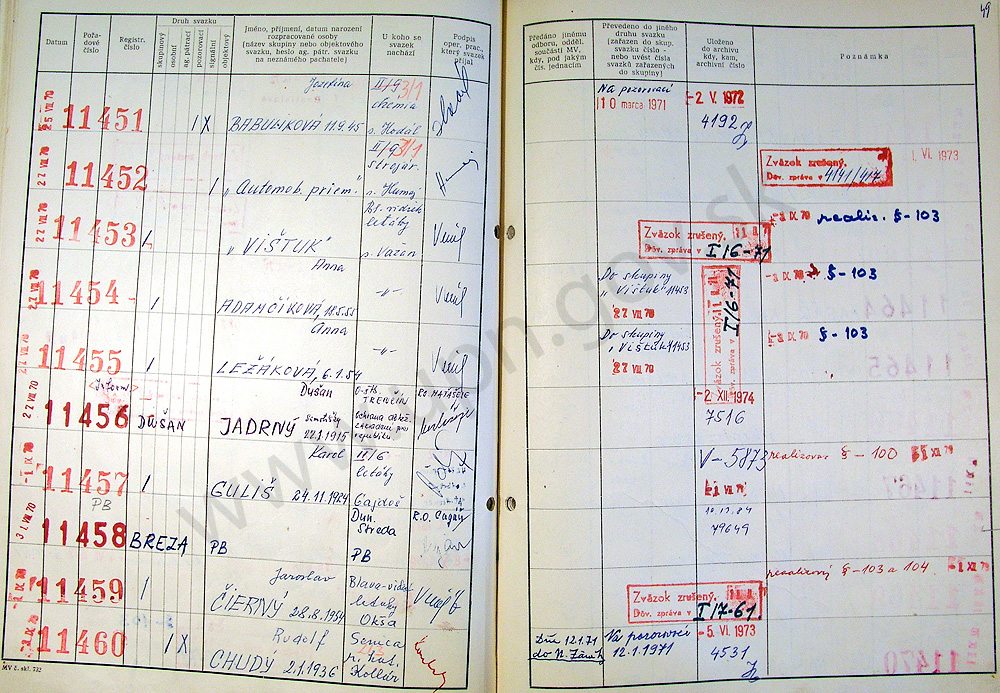 49
Druh svazku
Datum
Pořadové číslo
Registr. číslo
skupinový
osobní
ag. pátrací
pozorovací
signální
objektový
Jméno, příjmení, datum narození
rozpracované osoby
(název skupiny nebo objektového
svazku, heslo ag. pátr. svazku
na neznámého pachatele)
U koho se
svazek
nachází
Podpis
oper. prac.,
který svazek
přijal
Předáno jinému
odboru, odděl.
součásti MV,
kdy, pod jakým
čís. jednacím
Převedeno do jiného
druhu svazku
(zařazen do skup.
svazku číslo -
nebo uvést čísla
svazků zařazených
do skupiny)
Uloženo
do archivu
kdy, kam,
archivní číslo
Poznámka
25 VII 70
11451
1 X
Jozefína
BABULIKOVÁ 11.9.45
II/9 3/1
chemia
s. Hodál
Na pozorovací
10 marca 1971
-2. V. 1972
4192
27 VII 70
11452
1
"Automob. priem."
II/9 3/1
strojár.
Zväzok zrušený.
Dôv. zpráva v 4/41/417
1. VI. 1973
27 VII 70
11453
1
"VIŠTUK"
Bl. vidiek
letáky
s. Važan
Zväzok zrušený.
Dôv. zpráva v I/6-71
-3 IX 70 realiz. §-103
27 VII 70
11454
1
Anna
ADAMČÍKOVÁ, 18.5.55
-"-
Do skupiny
"Vištuk" 11453
27 VII 70
Zväzok zrušený.
Dôv. zpráva v I/6-71
-3 IX 70 §-103
27 VII 70
11455
1
Anna
LEŽÁKOVÁ, 6.1.54
-"-
Do skupiny
"Vištuk" 11453
27 VII 70
-3 IX 70 §-103
27 VII 70
11456
DUŠAN
Dušan
JADRNÝ
22.1.1915
TRENČÍN
R.O. MATÁŠEJE
-2. XII. 1974
7516
-1 IX 70
11457
1
Karol
GULIŠ 24.11.1924
II/6
letáky
Gajdoš
V-5873
realizovaz §-100
PB
31 VII 70
11458
BREZA
PB
Dun.
Streda
PB
79649
-1 IX 70
11459
1
Jaroslav
ČIERNÝ 28.8.1954
Blava-vidiek
letáky
Okša
Zväzok zrušený.
Dôv. zpráva v I/7-61
realizovaný §-103 a 104 -1 XI 70
11460
1 X
Rudolf
CHUDÝ 2.1.1936
Senica
Kollár
Dňa 12.1.71
do N. Zámk
Na pozorovací
12.1.1971
-5. VI. 1973
4531
MV č. skl. 732